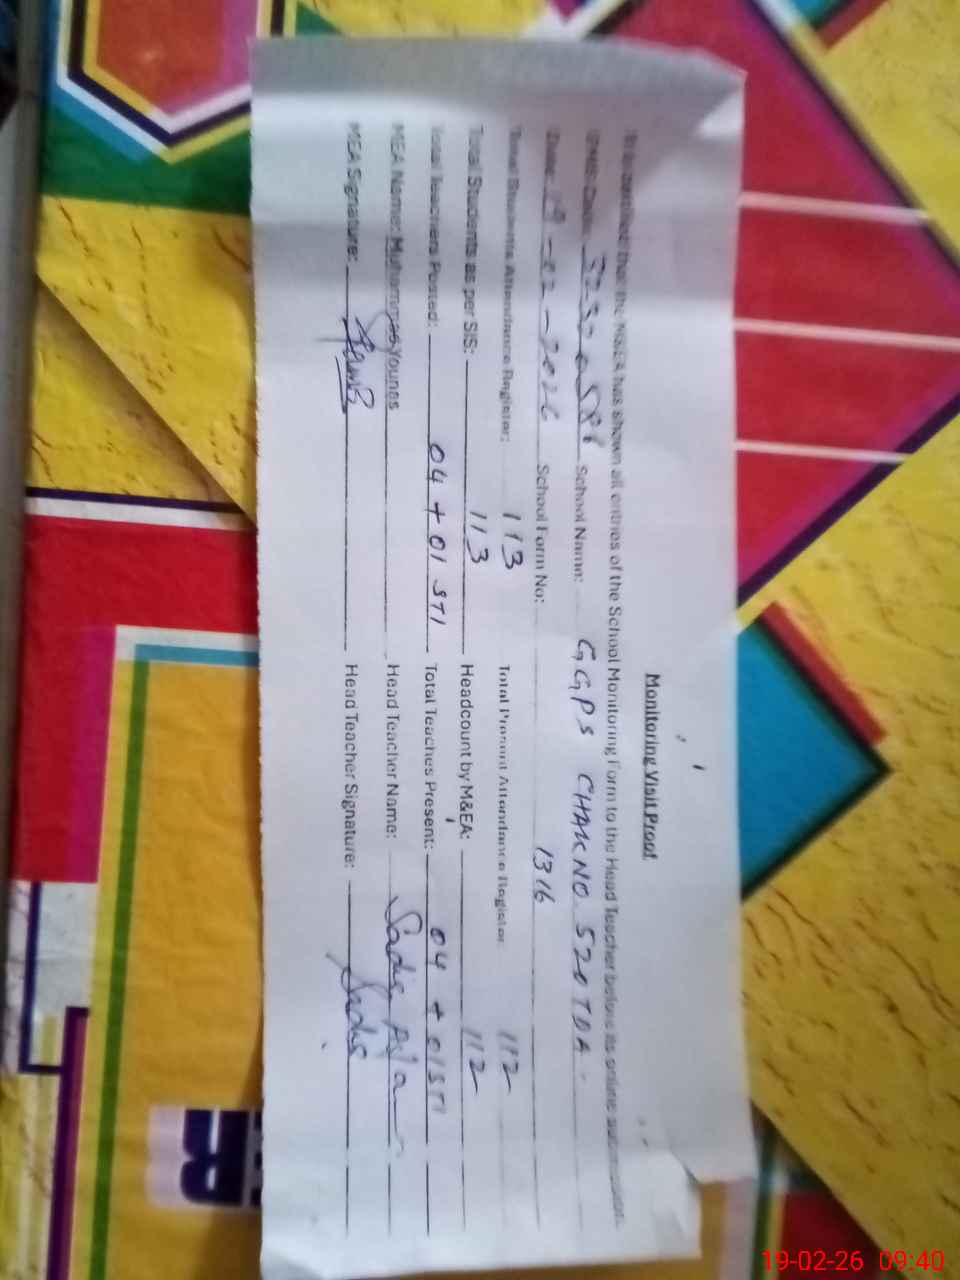 Monitoring Visit Proof
It is certified that the M&EA has shown all entries of the School Monitoring Form to the Head Teacher before its online submission.
EMIS Code: School Name: GGPS CHAK NO. 520 TDA
Date: 19-02-2026 School Form No: 1316
Total Students Attendance Register: 113 Total Present Attendance Register 112
Total Students as per SIS: 113 Headcount by M&EA: 112
Total Teachers Posted: 04 + 01 STI Total Teaches Present: 04 + 01 STI
MEA Name: Muhammad Younas Head Teacher Name:
MEA Signature: Head Teacher Signature:
19-02-26 09:40